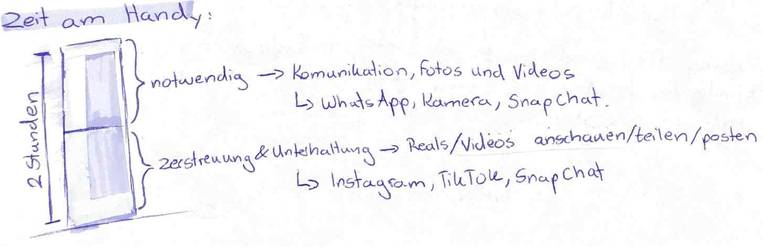 Zeit am Handy:
2 Stunden
notwendig → Komunikation, Fotos und Videos
↳ WhatsApp, Kamera, SnapChat.
Zerstreuung & Unterhaltung → Reals/Videos anschauen/teilen/posten
↳ Instagram, TikTok, SnapChat